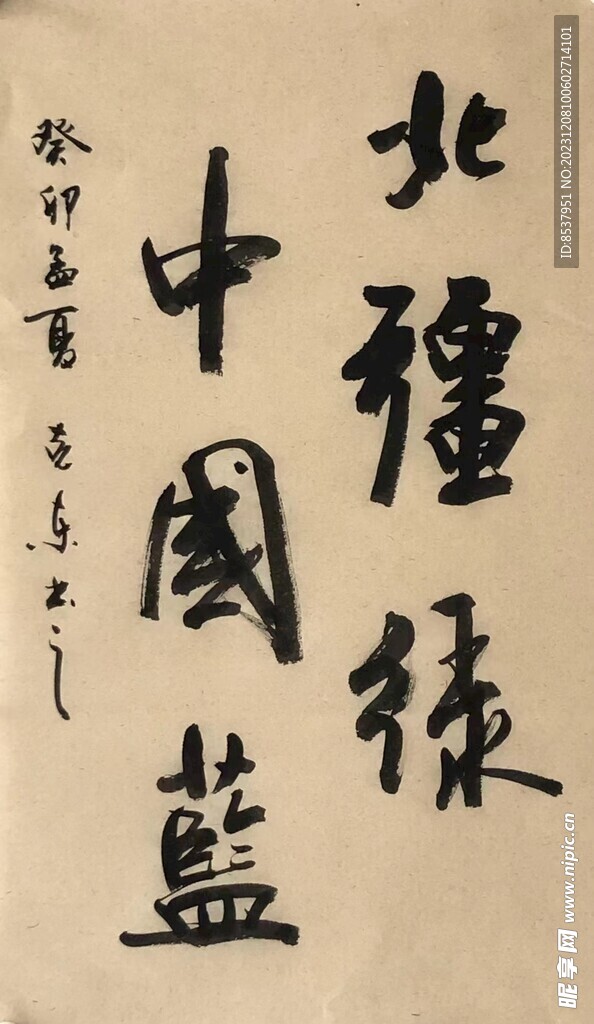 北疆绿
中國藍
癸卯孟夏 克东书之
ID:8537951 NO:20231208100602714101
昵享网 www.nipic.cn